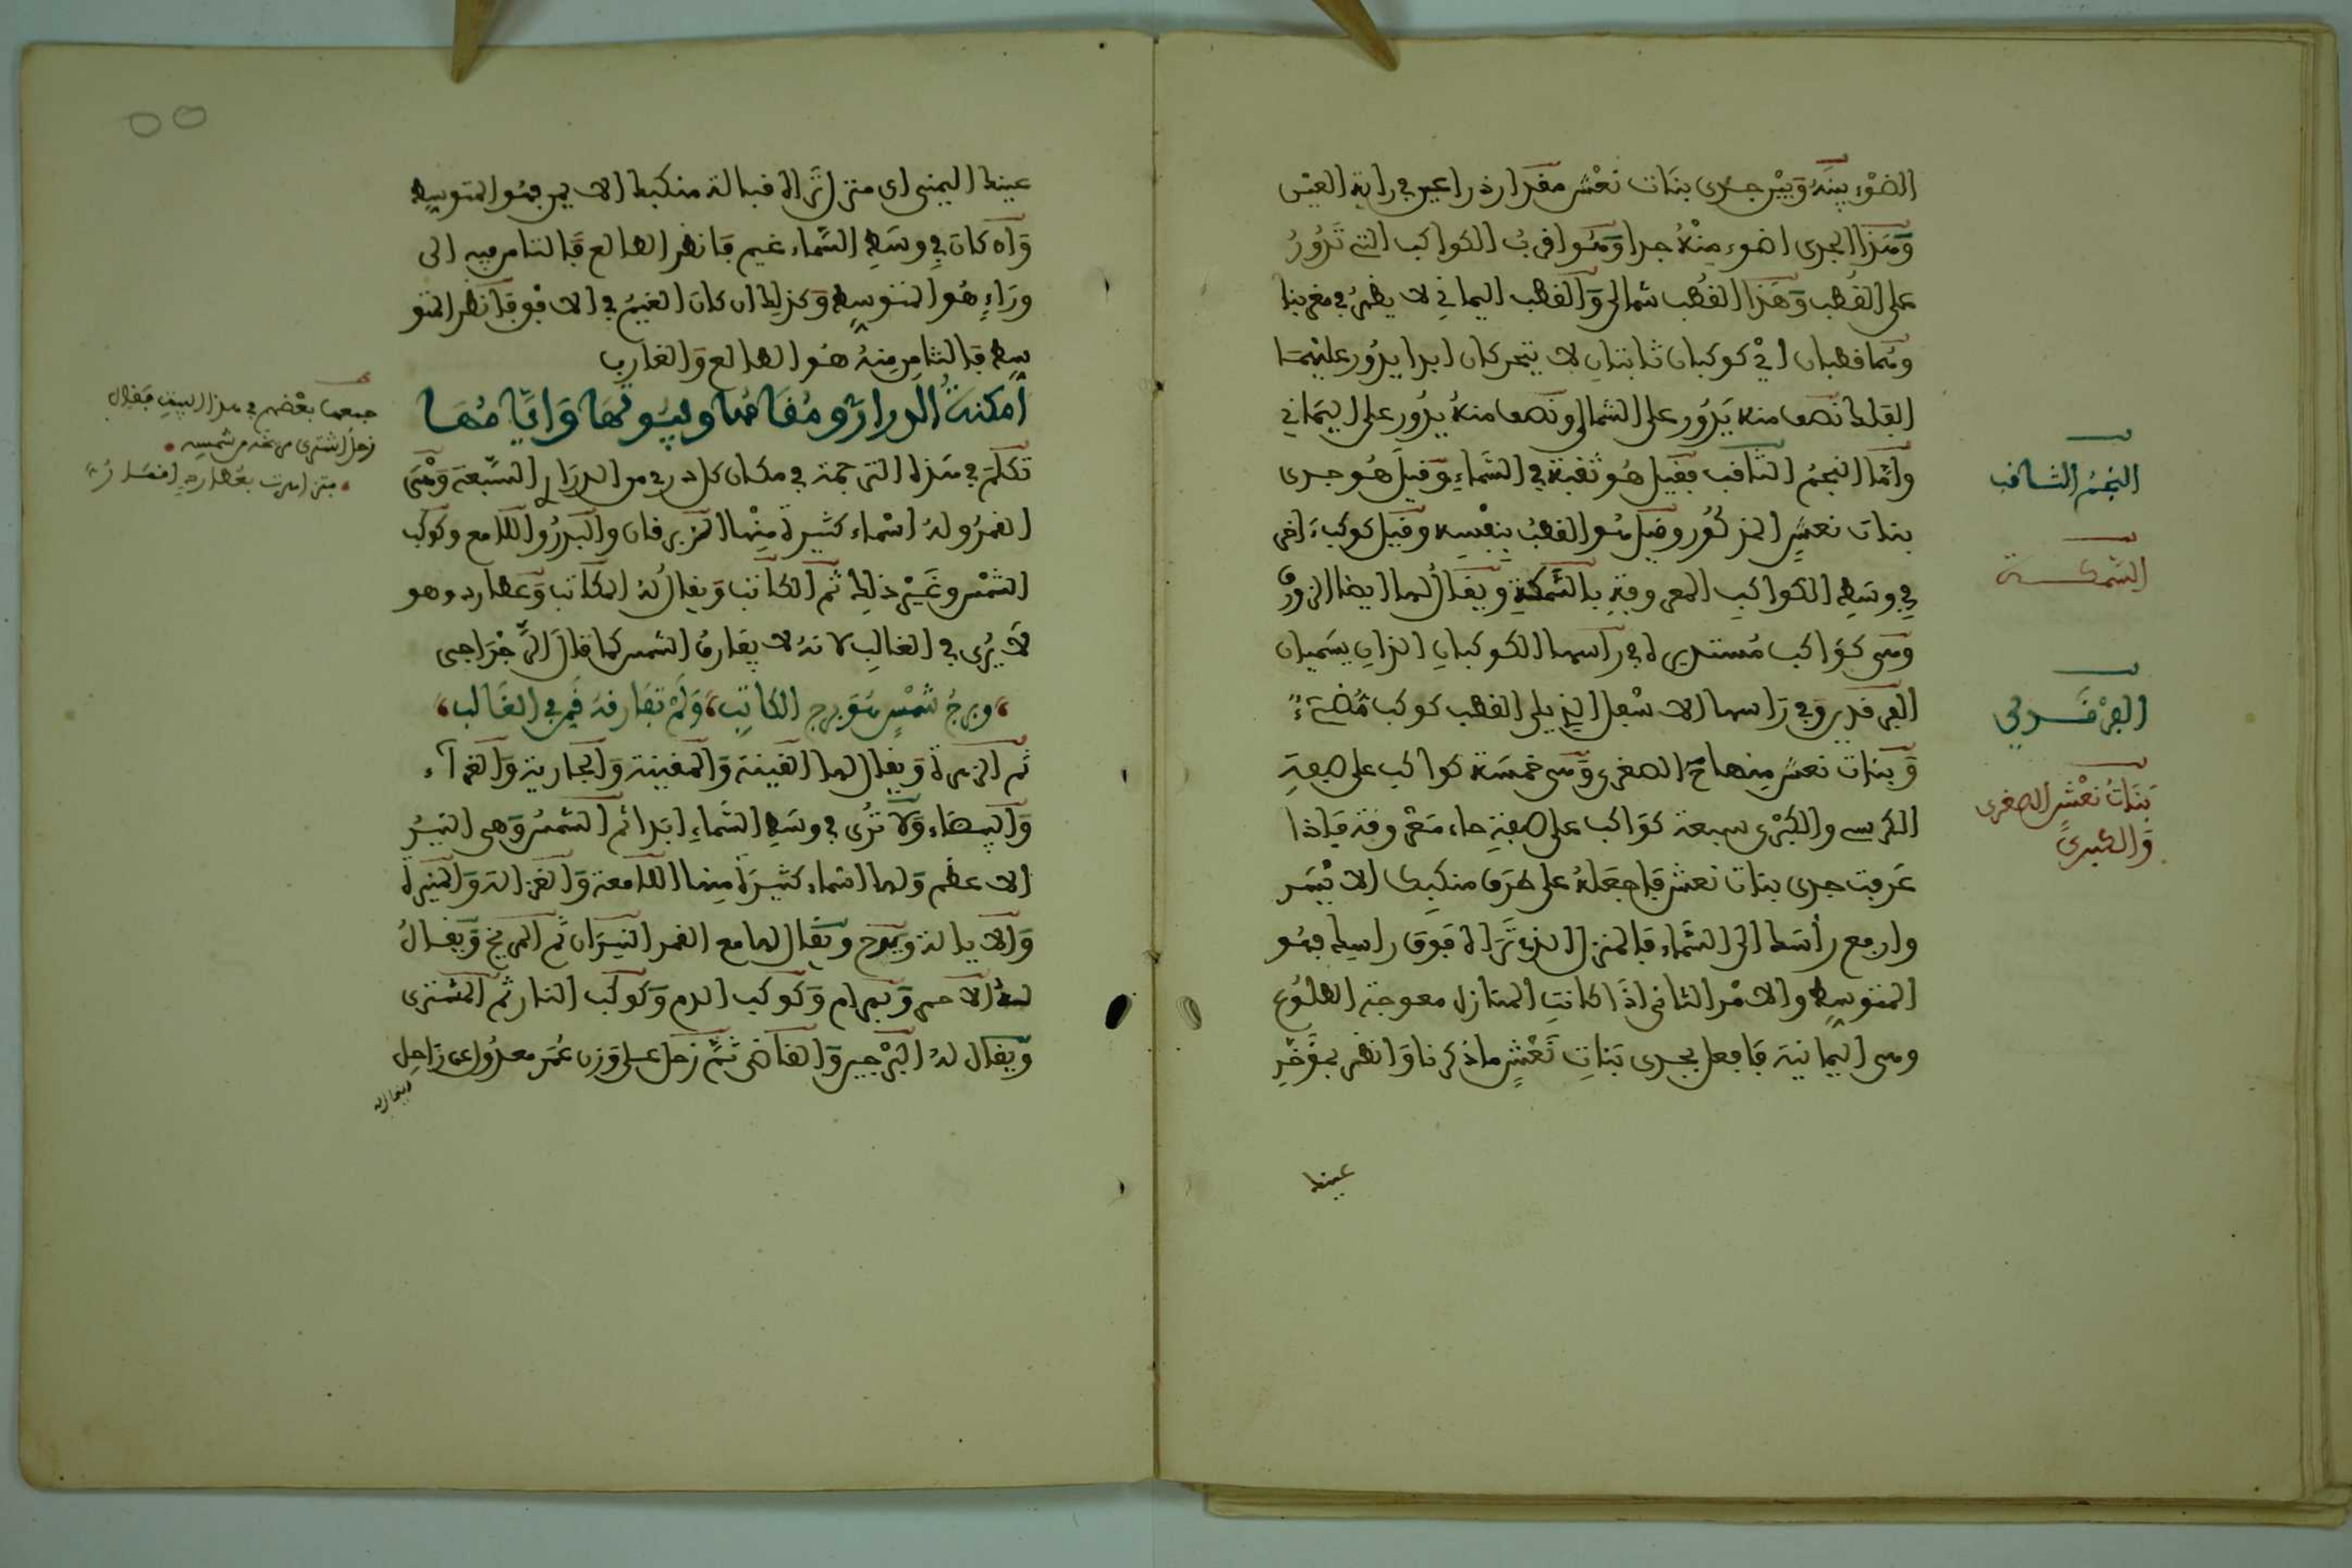 الضوْءِ بينَهُ وبيْن جدى بنات نعْش مقدار ذراعين في راية العيْن
وَهَذا الجدى اضوء مِنْهُ جدا وَهُوَ اقربُ الكواكب التى تَدُورُ
على القُطب وَهَذا القُطْب شمالى وَالقطب اليمانِي لا يظهرُ في مغربنا
وهُما قطبان ايْ كوكبان ثابتانِ لا يتحركان ابدا يدُور عليْهمَا
الفلك نصف منه يَدُور على الشمالى ونصف منهُ يدُور على اليمَاني
وأمّا النجمُ الثاقب فقيل هُو ثقبة في السَّماءِ وَقيلَ هُو جدى
بنات نعشٍ المذكُور وقيل هُو القطبُ بنفْسِه وقيل كوكب ءاخر
فِي وسَطِ الكواكبِ المعروفةِ بالسَّمكةِ ويُقالُ لها ايضا الزورقُ
وهى كوَاكب مُستديرة في راسها الكوكبانِ الذانِ يسَميان
الفرقدين وفي رَاسها الاسْفل الذِي يلى القطب كوكب مُضىءٌ
وَبنات نعشٍ منها الصغرى وَهى خمسَة كواكب على صفةِ
الكرسى والكبْرى سبعة كوَاكب على صفةِ حاء مَعْروفة فَإذا
عَرفت جدى بنات نعش فاجعَلهُ على طرَف منكبِك الايْسَر
وارفع رأسَك الى السَّماء فالمنزل الذى تَرَاهُ فوقَ راسِك فهُو
المتوسِط والامْر الثانى اذَا كانتِ المنازل معوجة الطلُوع
وهى اليمانية فافعل بجدى بَناتِ نَعْشٍ ما ذكرنا وَانظر بمؤخّرِ
عينك
النجمُ الثاقب
السَّمكة
الفرْقَدينِ
بَنَاتُ نعْشٍ الصغرى
وَالكبرى
عينك اليمنى اى منزل تَراه قبالة منكبك الايمن فهُو المتوسِط
وَان كانَ فِي وسَطِ السَّماء غيم فانظر الطالع فَالثامن فيه الى
ورَاءٍ هُو المتوسِط وَكذلِك ان كانَ الغيْمُ في الافْق فَانظر المتو
سِط فالثامن مِنهُ هُو الطالع وَالغارب
أَمكنةُ الدرارى ومُقامُها وبيُوتُهَا وَايّامُهَا
تكلمَ في هَذه الترجمة في مكان كل درى من الدرَارِى السَّبعة وَهْىَ
القمرُ ولهُ اسْماء كثيرة مِنْها الزبرقان والبَدرُ واللامع وكوكب
الشمْس وغَيْر ذلِك ثم الكاتب وَيقالُ لهُ الكاتب وَعطارد وهو
لا يُرى في الغالبِ لانهُ لا يفارقُ الشمس كما قالَ الزّجرَاجى
وبرجُ شمْسٍ هُوَ برج الكاتِب، وَلَمْ تفارقهُ فَهْىَ في الغَالب
ثم الزهرة وَيقال لها القينة وَالمغنيَة وَالجارية وَالغرآء
وَالبيضاء وَلا تُرى في وسَطِ السَّماءِ ابَدا ثم الشمسُ وَهى النيّرُ
الاعظم وَلها اسْماء كثيرَة مِنها اللامعة وَالغزالة وَالمنيرة
وَالايالة ويوح ويُقال لها مع القمر النيّرَان ثم المريخ وَيقالُ
لهُ الاحمر وَبهرام وَكوكب الدم وَكوكب النار ثم المشترى
وَيقال لهُ البرْجيس وَالقاضى ثمَّ زحَل على وَزن عُمَر معدُول عن زَاحِل
جمعها بعْضهم في هذا البيتِ فقال
زحلُ اشترى مريخه من شمسِه
فتزاهرت بعُطاردٍ اقمَارُ